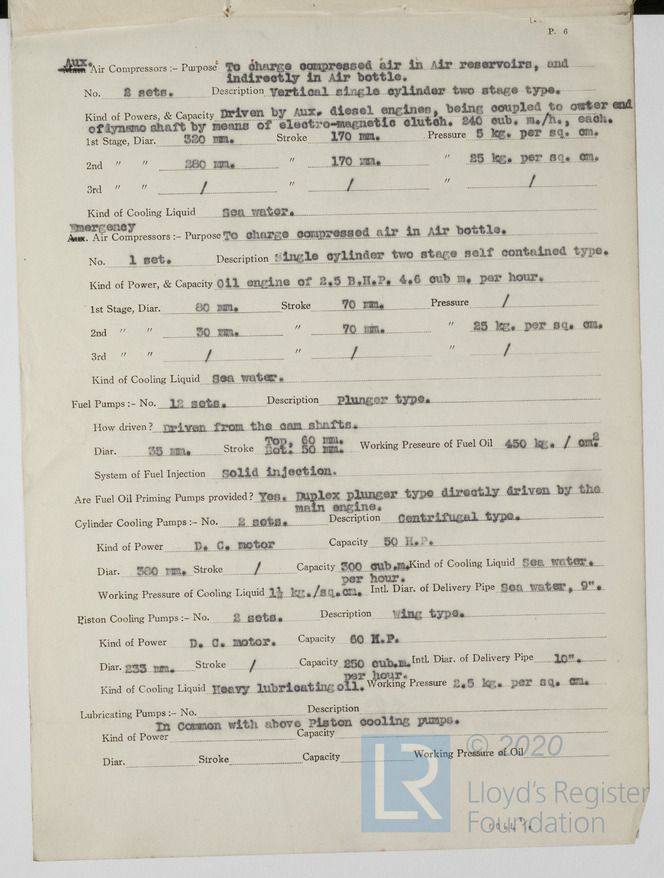 P. 6
Aux.
Main Air Compressors :- Purpose To charge compressed air in Air reservoirs, and
indirectly in Air bottle.
No. 2 sets. Description Vertical single cylinder two stage type.
Kind of Powers, & Capacity Driven by Aux. diesel engines, being coupled to outer end
of dynamo shaft by means of electro-magnetic clutch. 240 cub. m./h., each.
1st Stage, Diar. 320 mm. Stroke 170 mm. Pressure 5 kg. per sq. cm.
2nd " " 280 mm. " 170 mm. " 25 kg. per sq. cm.
3rd " " / " / " /
Kind of Cooling Liquid Sea water.
Emergency
Aux. Air Compressors :- Purpose To charge compressed air in Air bottle.
No. 1 set. Description Single cylinder two stage self contained type.
Kind of Power, & Capacity Oil engine of 2.5 B.H.P. 4.6 cub m. per hour.
1st Stage, Diar. 80 mm. Stroke 70 mm. Pressure /
2nd " " 30 mm. " 70 mm. " 25 kg. per sq. cm.
3rd " " / " / " /
Kind of Cooling Liquid Sea water.
Fuel Pumps :- No. 12 sets. Description Plunger type.
How driven? Driven from the cam shafts.
Diar. 35 mm. Stroke Top, 60 mm. Working Preseure of Fuel Oil 450 kg. / cm.2
Bot. 50 mm.
System of Fuel Injection Solid injection.
Are Fuel Oil Priming Pumps provided? Yes. Duplex plunger type directly driven by the
main engine.
Cylinder Cooling Pumps :- No. 2 sets. Description Centrifugal type.
Kind of Power D. C. motor Capacity 50 H.P.
Diar. 380 mm. Stroke / Capacity 300 cub.m. Kind of Cooling Liquid Sea water.
per hour.
Working Pressure of Cooling Liquid 1½ kg./sq.cm. Intl. Diar. of Delivery Pipe Sea water, 9".
Piston Cooling Pumps :- No. 2 sets. Description Wing type.
Kind of Power D. C. motor. Capacity 60 H.P.
Diar. 233 mm. Stroke / Capacity 250 cub.m. Intl. Diar. of Delivery Pipe 10".
per hour.
Kind of Cooling Liquid Heavy lubricating oil. Working Pressure 2.5 kg. per sq. cm.
Lubricating Pumps :- No. Description
In Common with above Piston cooling pumps.
Kind of Power Capacity
Diar. Stroke Capacity Working Pressure of Oil
LR
© 2020
Lloyd's Register
Foundation